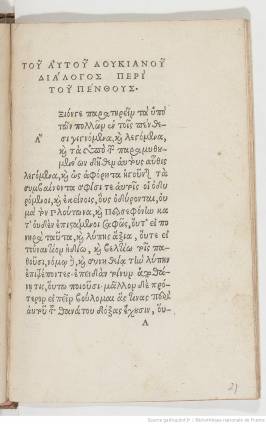 ΤΟΥ ΑΥΤΟΥ ΛΟΥΚΙΑΝΟΥ
ΔΙΑΛΟΓΟΣ ΠΕΡΙ
ΤΟΥ ΠΕΝΘΟΥΣ.
Ξιόν γε παρατηρεῖν τὰ ὑπὸ
τῶν πολλῶν ἐν τοῖς πένθε
Α σι γινόμενα, καὶ λεγόμενα,
καὶ τὰ ὑπὸ τῶν παραμυθου
μένων δῆθεν αὐτοὺς αὖθις
λεγόμενα, καὶ ὡς ἀφόρητα ἡγοῦνται τὰ
συμβαίνοντα σφίσι τε αὐτοῖς οἱ ὀδυ
ρόμενοι, καὶ ἐκείνοις, οὓς ὀδύρονται, οὐ
μὰ τὸν Πλούτωνα, καὶ Περσεφόνην κα
τ' οὐδὲν ἐπιστάμενοι σαφῶς, οὔτ' εἰ πο
νηρὰ ταῦτα, καὶ λύπης ἄξια, οὔτε εἰ
τοὐναντίον ἡδέα, καὶ βελτίω τοῖς πα
θοῦσι, νόμῳ δὲ, καὶ συνηθείᾳ τὴν λύπην
ἐπιτρέποντες. ἐπειδὰν τοίνυν ἀποθά
νῃ τις, οὕτω ποιοῦσι. μᾶλλον δὲ πρό
τερον εἰπεῖν βούλομαι ἅς τινας περὶ
αὐτοῦ τοῦ θανάτου δόξας ἔχουσιν, οὕ
Λ
21
Source gallica.bnf.fr / Bibliothèque nationale de France